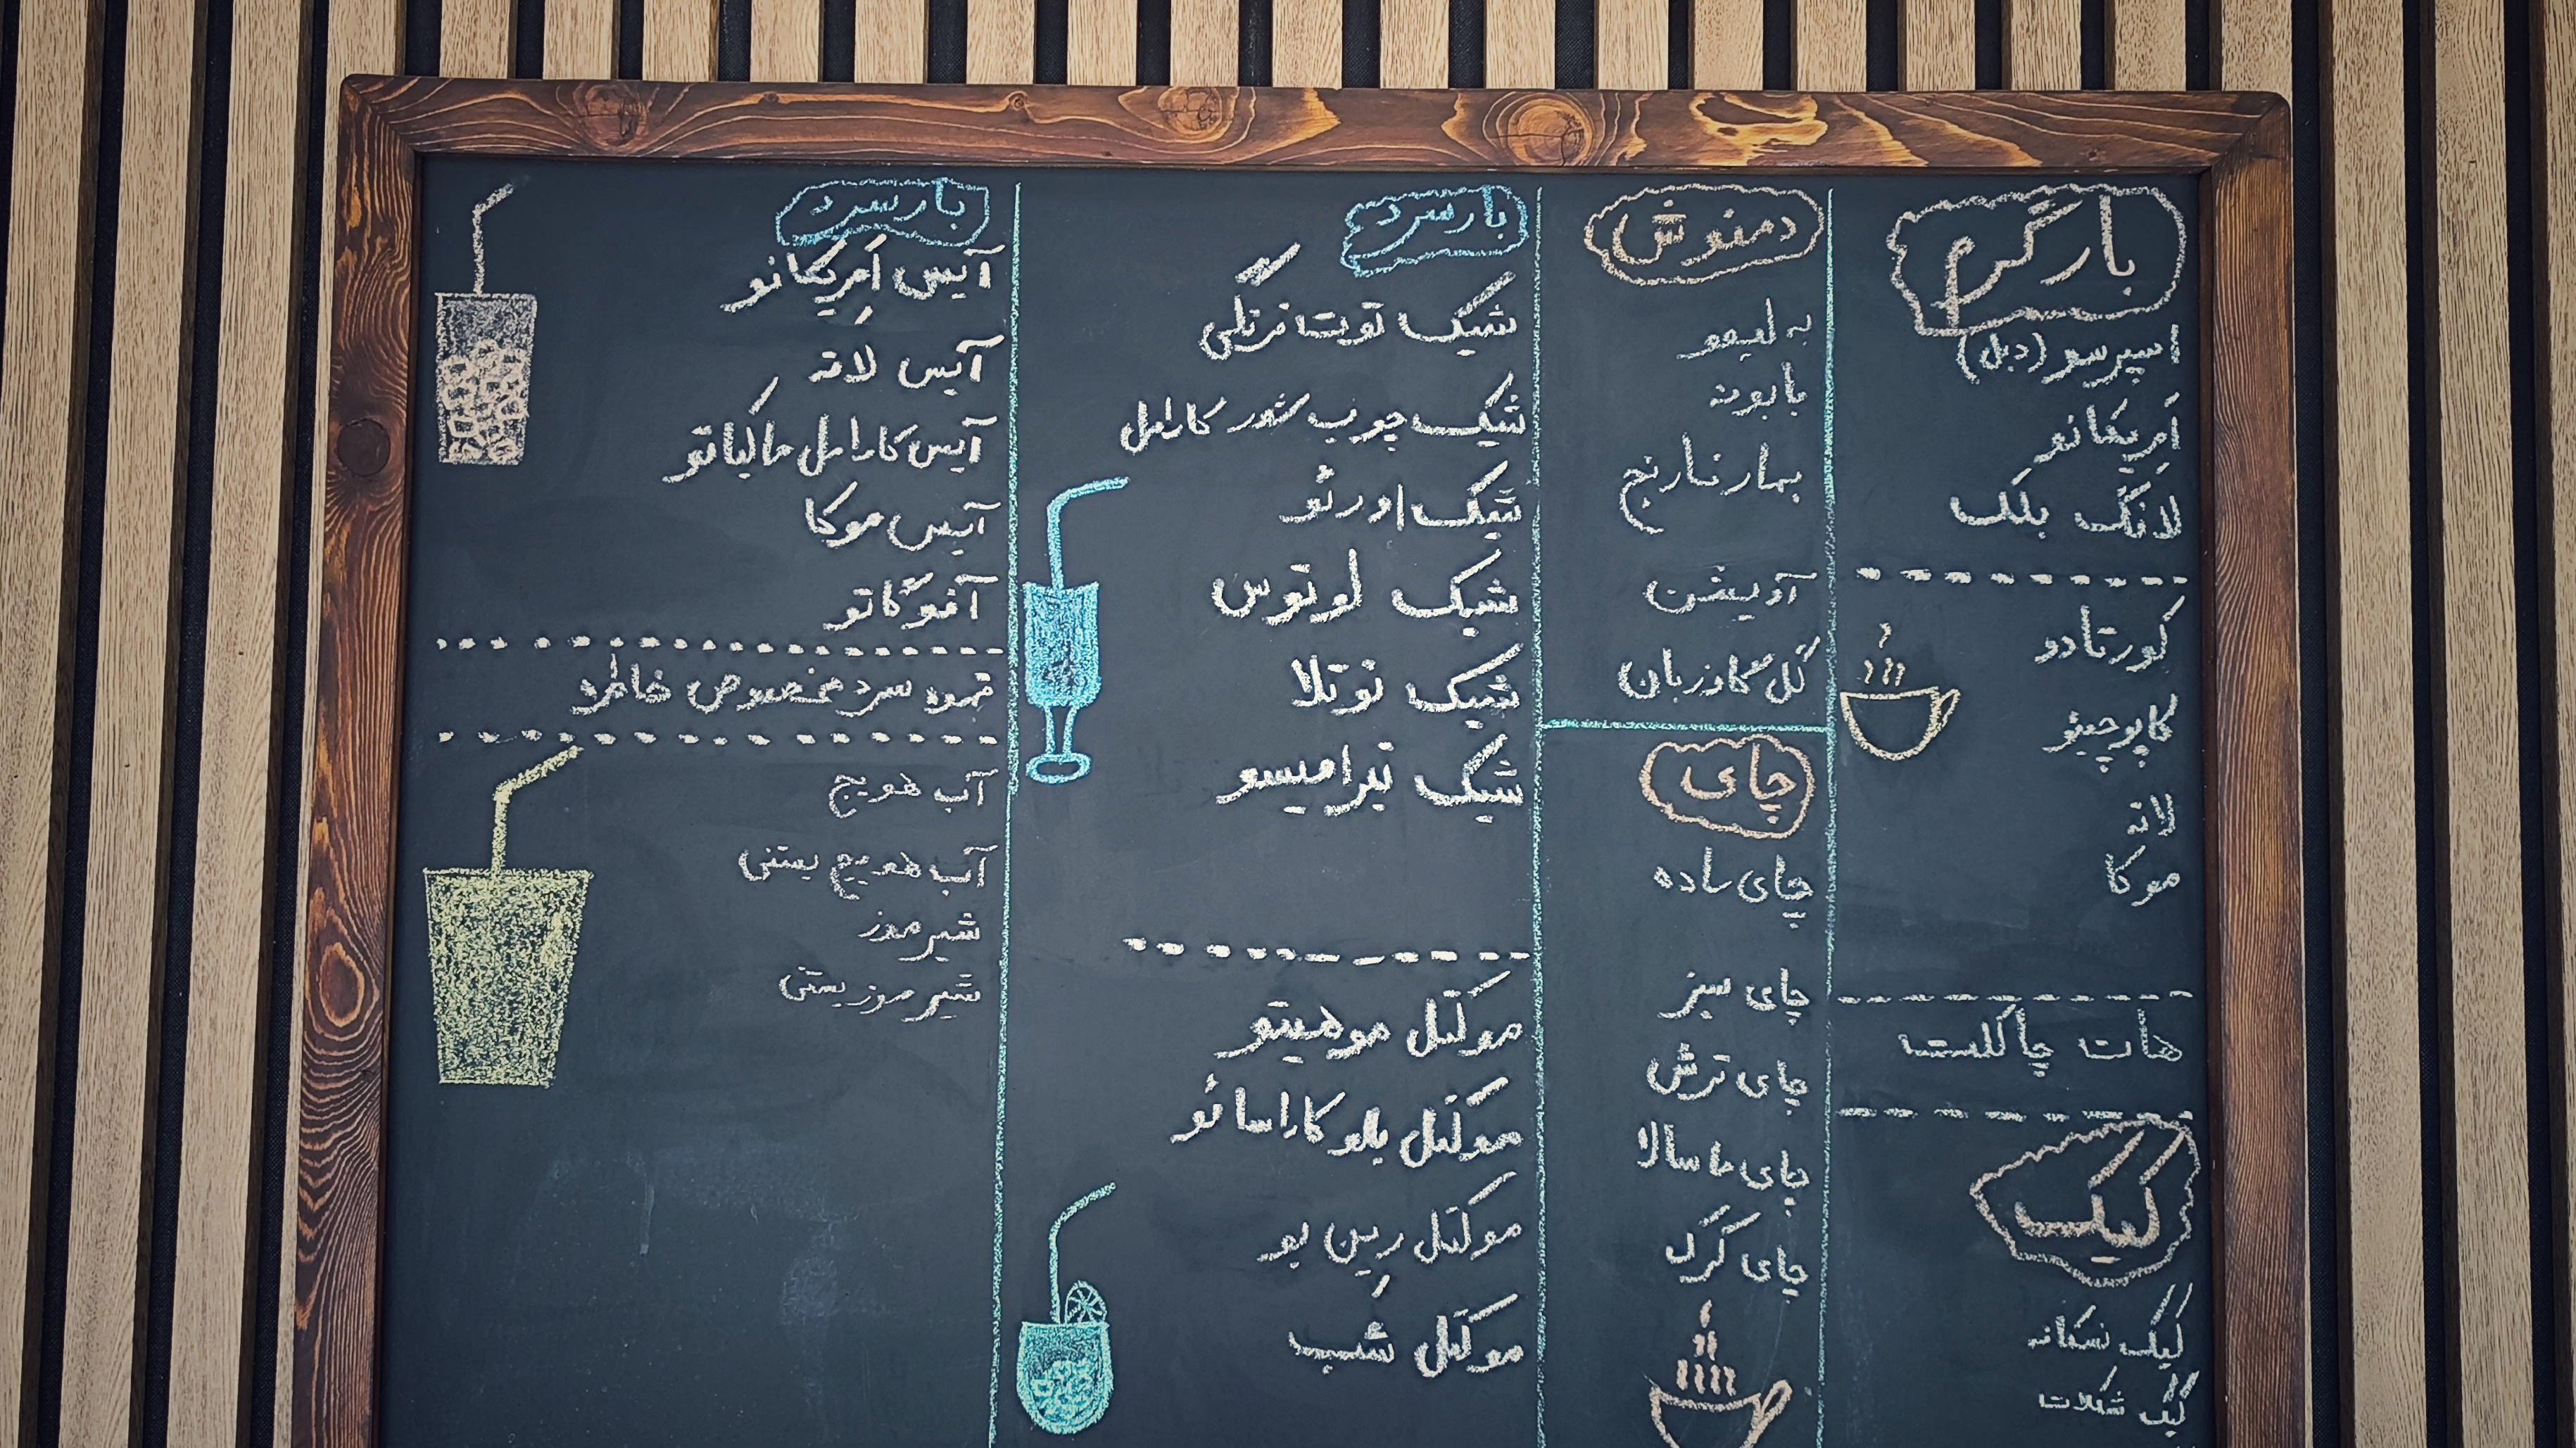 بار گرم
اسپرسو (دبل)
آمریکانو
لانگ بلک
کورتادو
کاپوچینو
لاته
موکا
هات چاکلت
کیک
کیک نسکافه
کیک شکلات
دمنوش
به لیمو
بابونه
بهار نارنج
آویشن
گل گاوزبان
چای
چای ساده
چای سبز
چای ترش
چای ماسالا
چای کرک
بار سرد
شیک توت فرنگی
شیک چوب شور کارامل
شیک اورئو
شیک لوتوس
شیک نوتلا
شیک تیرامیسو
موکتل موهیتو
موکتل بلو کاراسائو
موکتل رین بو
موکتل شب
بار سرد
آیس اَمِریکانو
آیس لاته
آیس کارامل ماکیاتو
آیس موکا
آفوگاتو
قهوه سرد مخصوص خاطره
آب هویج
آب هویج بستنی
شیر موز
شیر موز بستنی